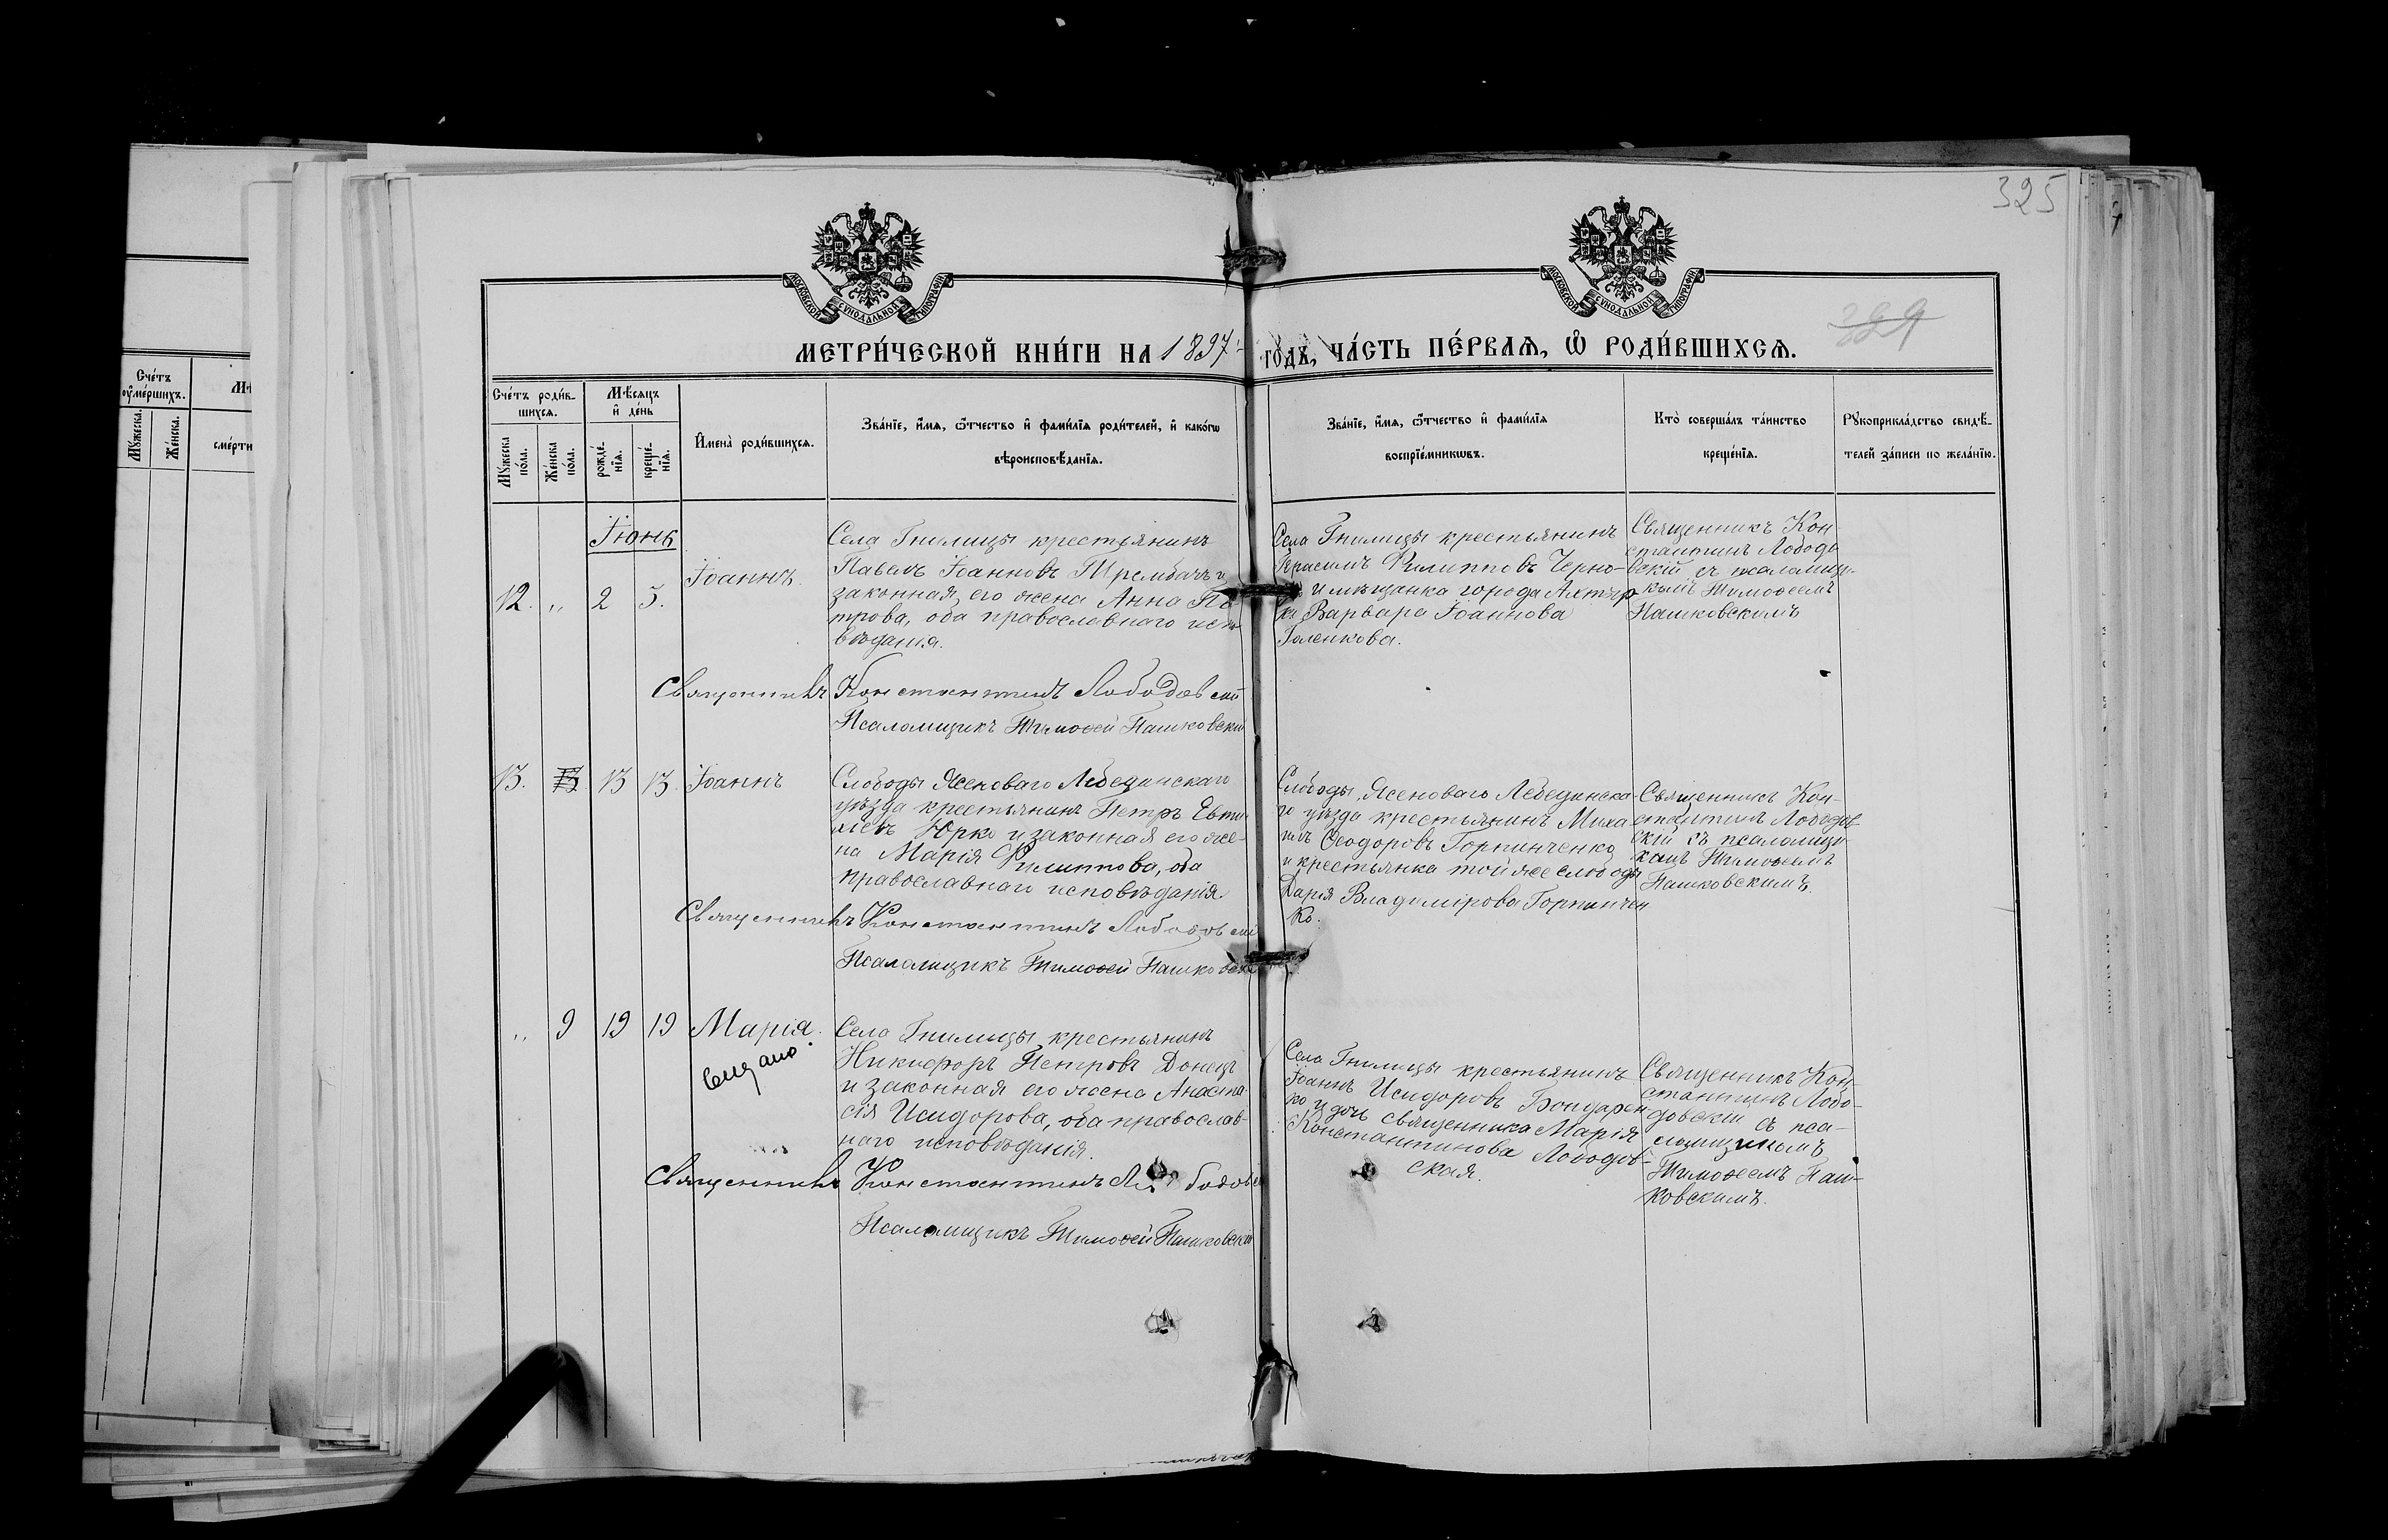 325
МОСКОВСКОЙ СѴНОДАЛЬНОЙ ТИПОГРАФІИ
МОСКОВСКОЙ СѴНОДАЛЬНОЙ ТИПОГРАФІИ
МЕТРИ́ЧЕСКОЙ КНИ́ГИ НА 1897 ГО́ДЪ, ЧА́СТЬ ПЕ́РВАѦ, Ѽ РОДИ́ВШИХСѦ.
329
Сче́тъ оуме́ршихъ.
Мꙋжеска.
Же́нска.
сме́рти
Сче́тъ роди́в-
шихсѧ.
Мꙋжеска по́ла.
Же́нска по́ла.
Мѣ́сѧцъ
и҆ де́нь
рожде́-
нїѧ.
креще́-
нїѧ.
И҆мена̀ роди́вшихсѧ.
Зва́нїе, и҆́мѧ, ѿтчество и҆ фами́лїѧ роди́телей, и҆ како́гѡ
вѣроисповѣ́данїѧ.
Зва́нїе, и҆́мѧ, ѿтчество и҆ фами́лїѧ
воспрїе́мникѡвъ.
Кто̀ соверша́лъ та́инство
креще́нїѧ.
Рꙋкоприкла́дство свидѣ́-
телей за́писи по жела́нїю.
Іюнь
12. „ 2 5. Іоаннъ.
Села Гнилицы крестьянинъ
Павелъ Іоанновъ Трембачъ и
законная его жена Анна Пе-
трова, оба православнаго испо-
вѣданія.
Села Гнилицы крестьянинъ
Герасимъ Филипповъ Черно-
и мѣщанка города Ахтыр-
ки Варвара Іоаннова
Голенкова.
Священникъ Кон
стантинъ Лободо
вскій съ псаломщи-
комъ Тимоѳеемъ
Пашковскимъ
Священникъ Константинъ Лободовскій
Псаломщикъ Тимоѳей Пашковскій
13. 13 13 Іоаннъ
Слободы Ясеноваго Лебединскаго
уѣзда крестьянинъ Петръ Евти
міевъ Юрко и законная его же-
на Марія Филиппова, оба
православнаго исповѣданія.
Слободы Ясеноваго Лебединска-
го уѣзда крестьянинъ Миха-
илъ Ѳеодоровъ Горпинченко
и крестьянка той же слободы
Дарія Владимірова Горпинчен
ко.
Священникъ Кон-
стантинъ Лободов
скій съ псаломщи-
комъ Тимоѳеемъ
Пашковскимъ.
Священникъ Константинъ Лободовскій
Псаломщикъ Тимоѳей Пашковскій
„ 9 19 19 Марія.
Села Гнилицы крестьянинъ
Никифоръ Петровъ Донецъ
и законная его жена Анаста
сія Исидорова, оба православ-
наго исповѣданія.
Села Гнилицы крестьянинъ
Іоаннъ Исидоровъ Бондарен
ко и дочь священника Марія
Константинова Лободов-
ская.
Священникъ Кон-
стантинъ Лобо-
довскій съ пса-
ломщикомъ
Тимоѳеемъ Паш-
ковскимъ.
Священникъ Константинъ Лободовскій
Псаломщикъ Тимоѳей Пашковскій